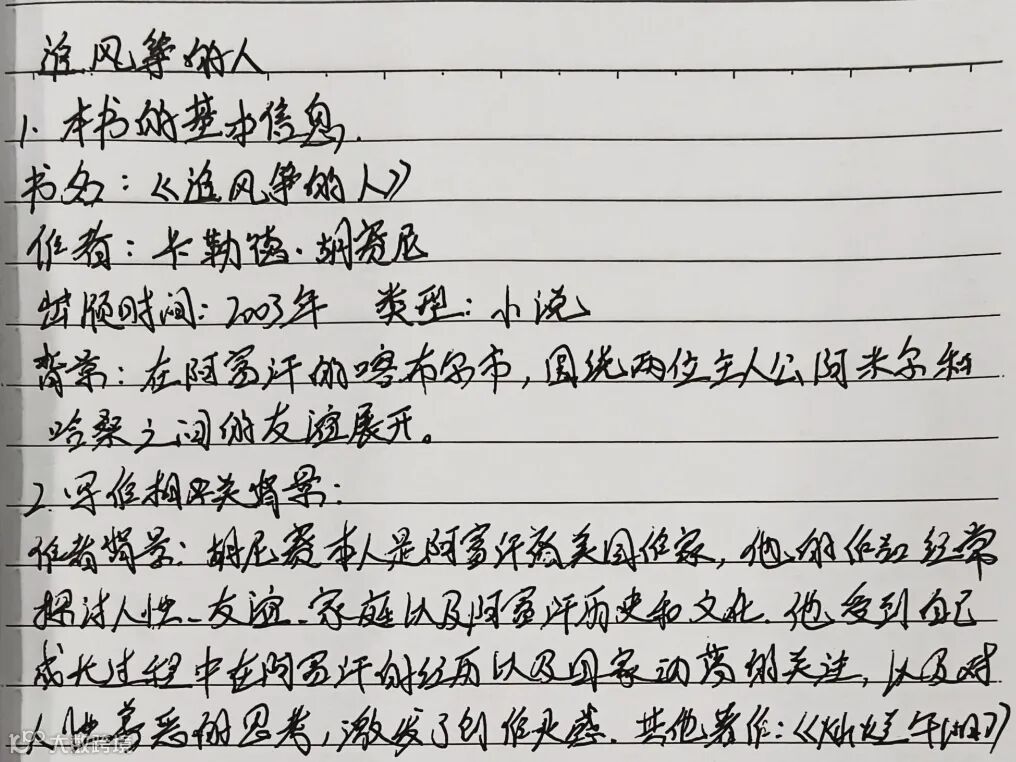 追风筝的人
1. 本书的基本信息.
书名：《追风筝的人》
作者：卡勒德·胡赛尼
出版时间：2003年 类型：小说
背景：在阿富汗的喀布尔市，围绕两位主人公阿米尔和
哈桑之间的友谊展开。
2. 写作相关背景：
作者背景：胡尼赛本人是阿富汗裔美国作家，他的作品经常
探讨人性、友谊、家庭以及阿富汗历史和文化.他受到自己
成长过程中在阿富汗的经历以及国家动荡的关注，以及对
人性善恶的思考，激发了创作灵感.其他著作：《灿烂千阳》
大数跨境